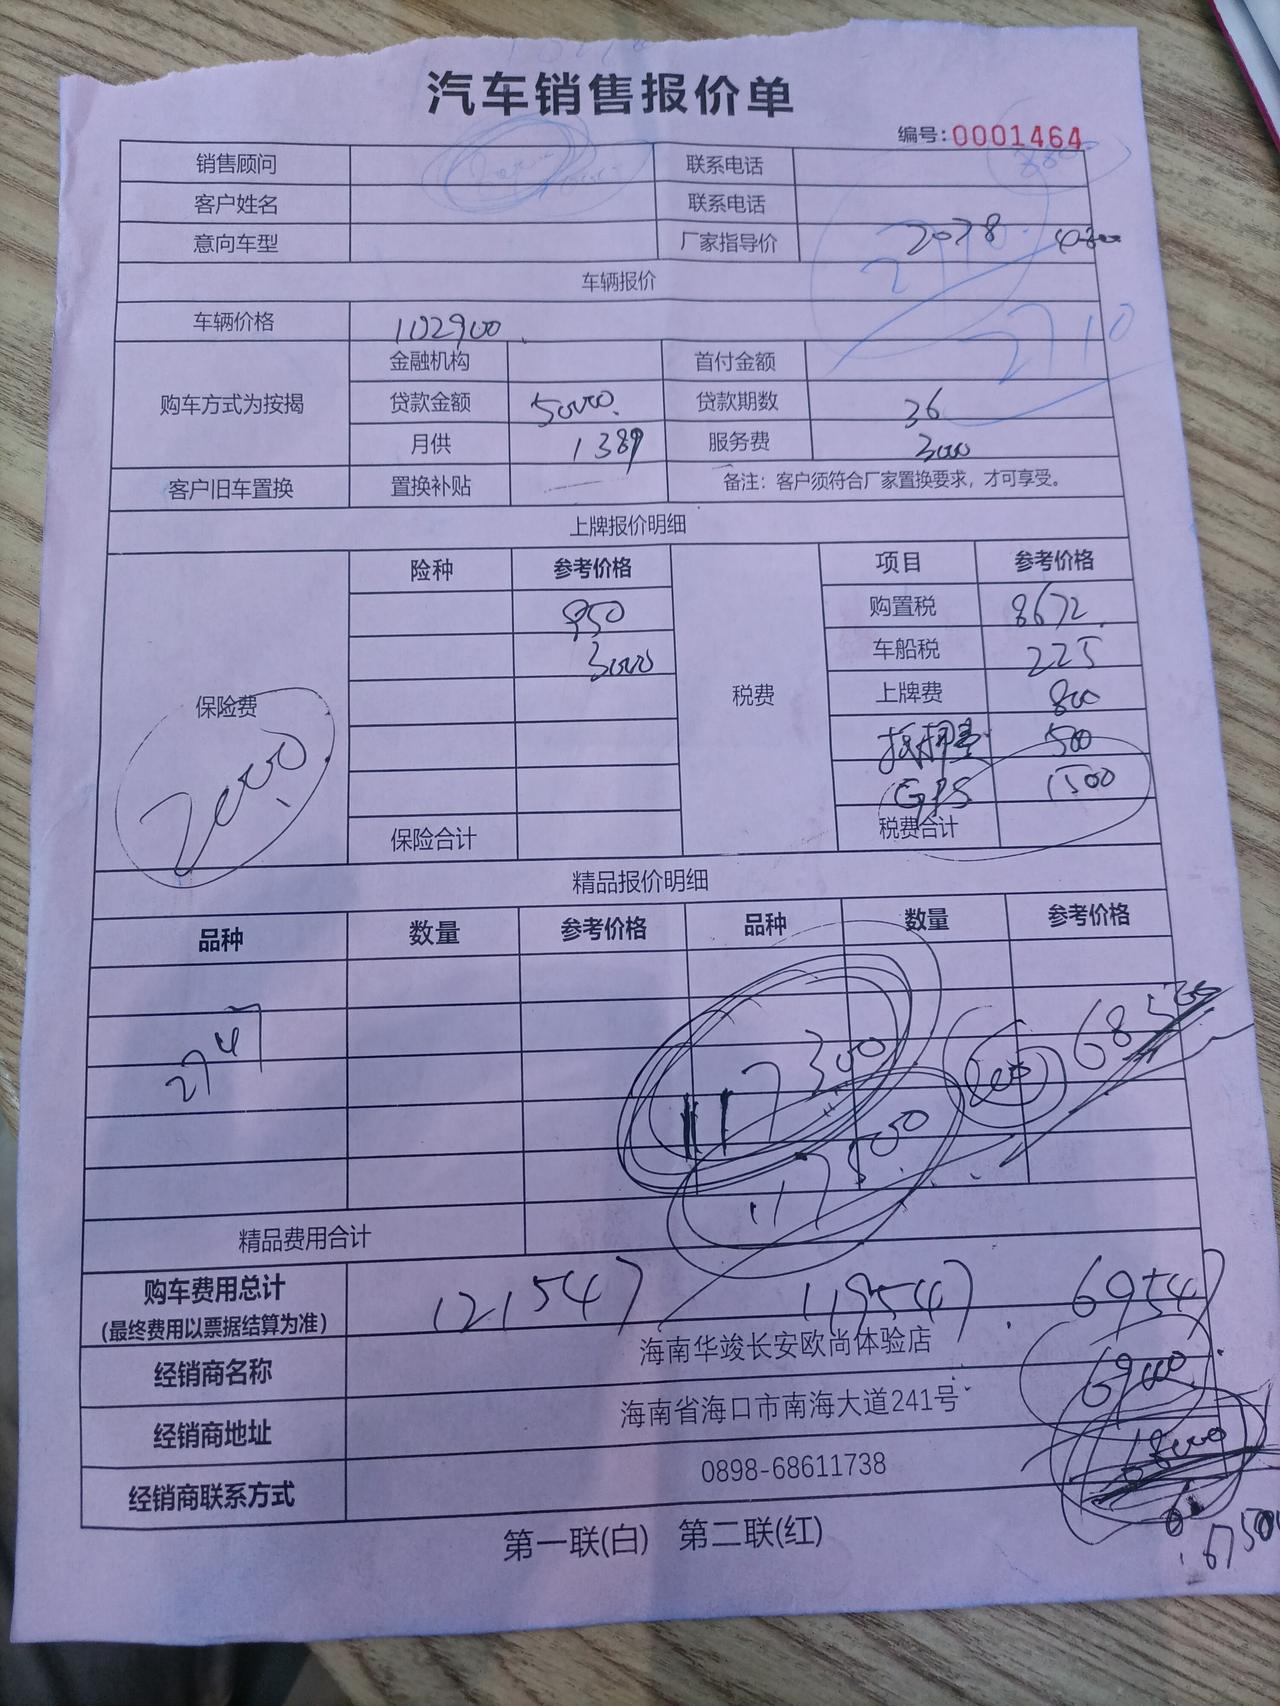 汽车销售报价单
编号:0001464
销售顾问 联系电话
客户姓名 联系电话
意向车型 厂家指导价 2078
车辆报价
车辆价格 102900
购车方式为按揭 金融机构 首付金额
贷款金额 50000 贷款期数 36
月供 1389 服务费 3000
客户旧车置换 置换补贴 备注：客户须符合厂家置换要求，才可享受。
上牌报价明细
保险费 险种 参考价格 税费 项目 参考价格
950 购置税 8672
3000 车船税 225
上牌费 800
2000 抵押费 500
GPS 1500
保险合计 税费合计
精品报价明细
品种 数量 参考价格 品种 数量 参考价格
2747 117300 68500
117500
精品费用合计
购车费用总计 121547 119547 69547
(最终费用以票据结算为准)
经销商名称 海南华竣长安欧尚体验店 69000
经销商地址 海南省海口市南海大道241号 68000
经销商联系方式 0898-68611738
67500
第一联(白) 第二联(红)
2710